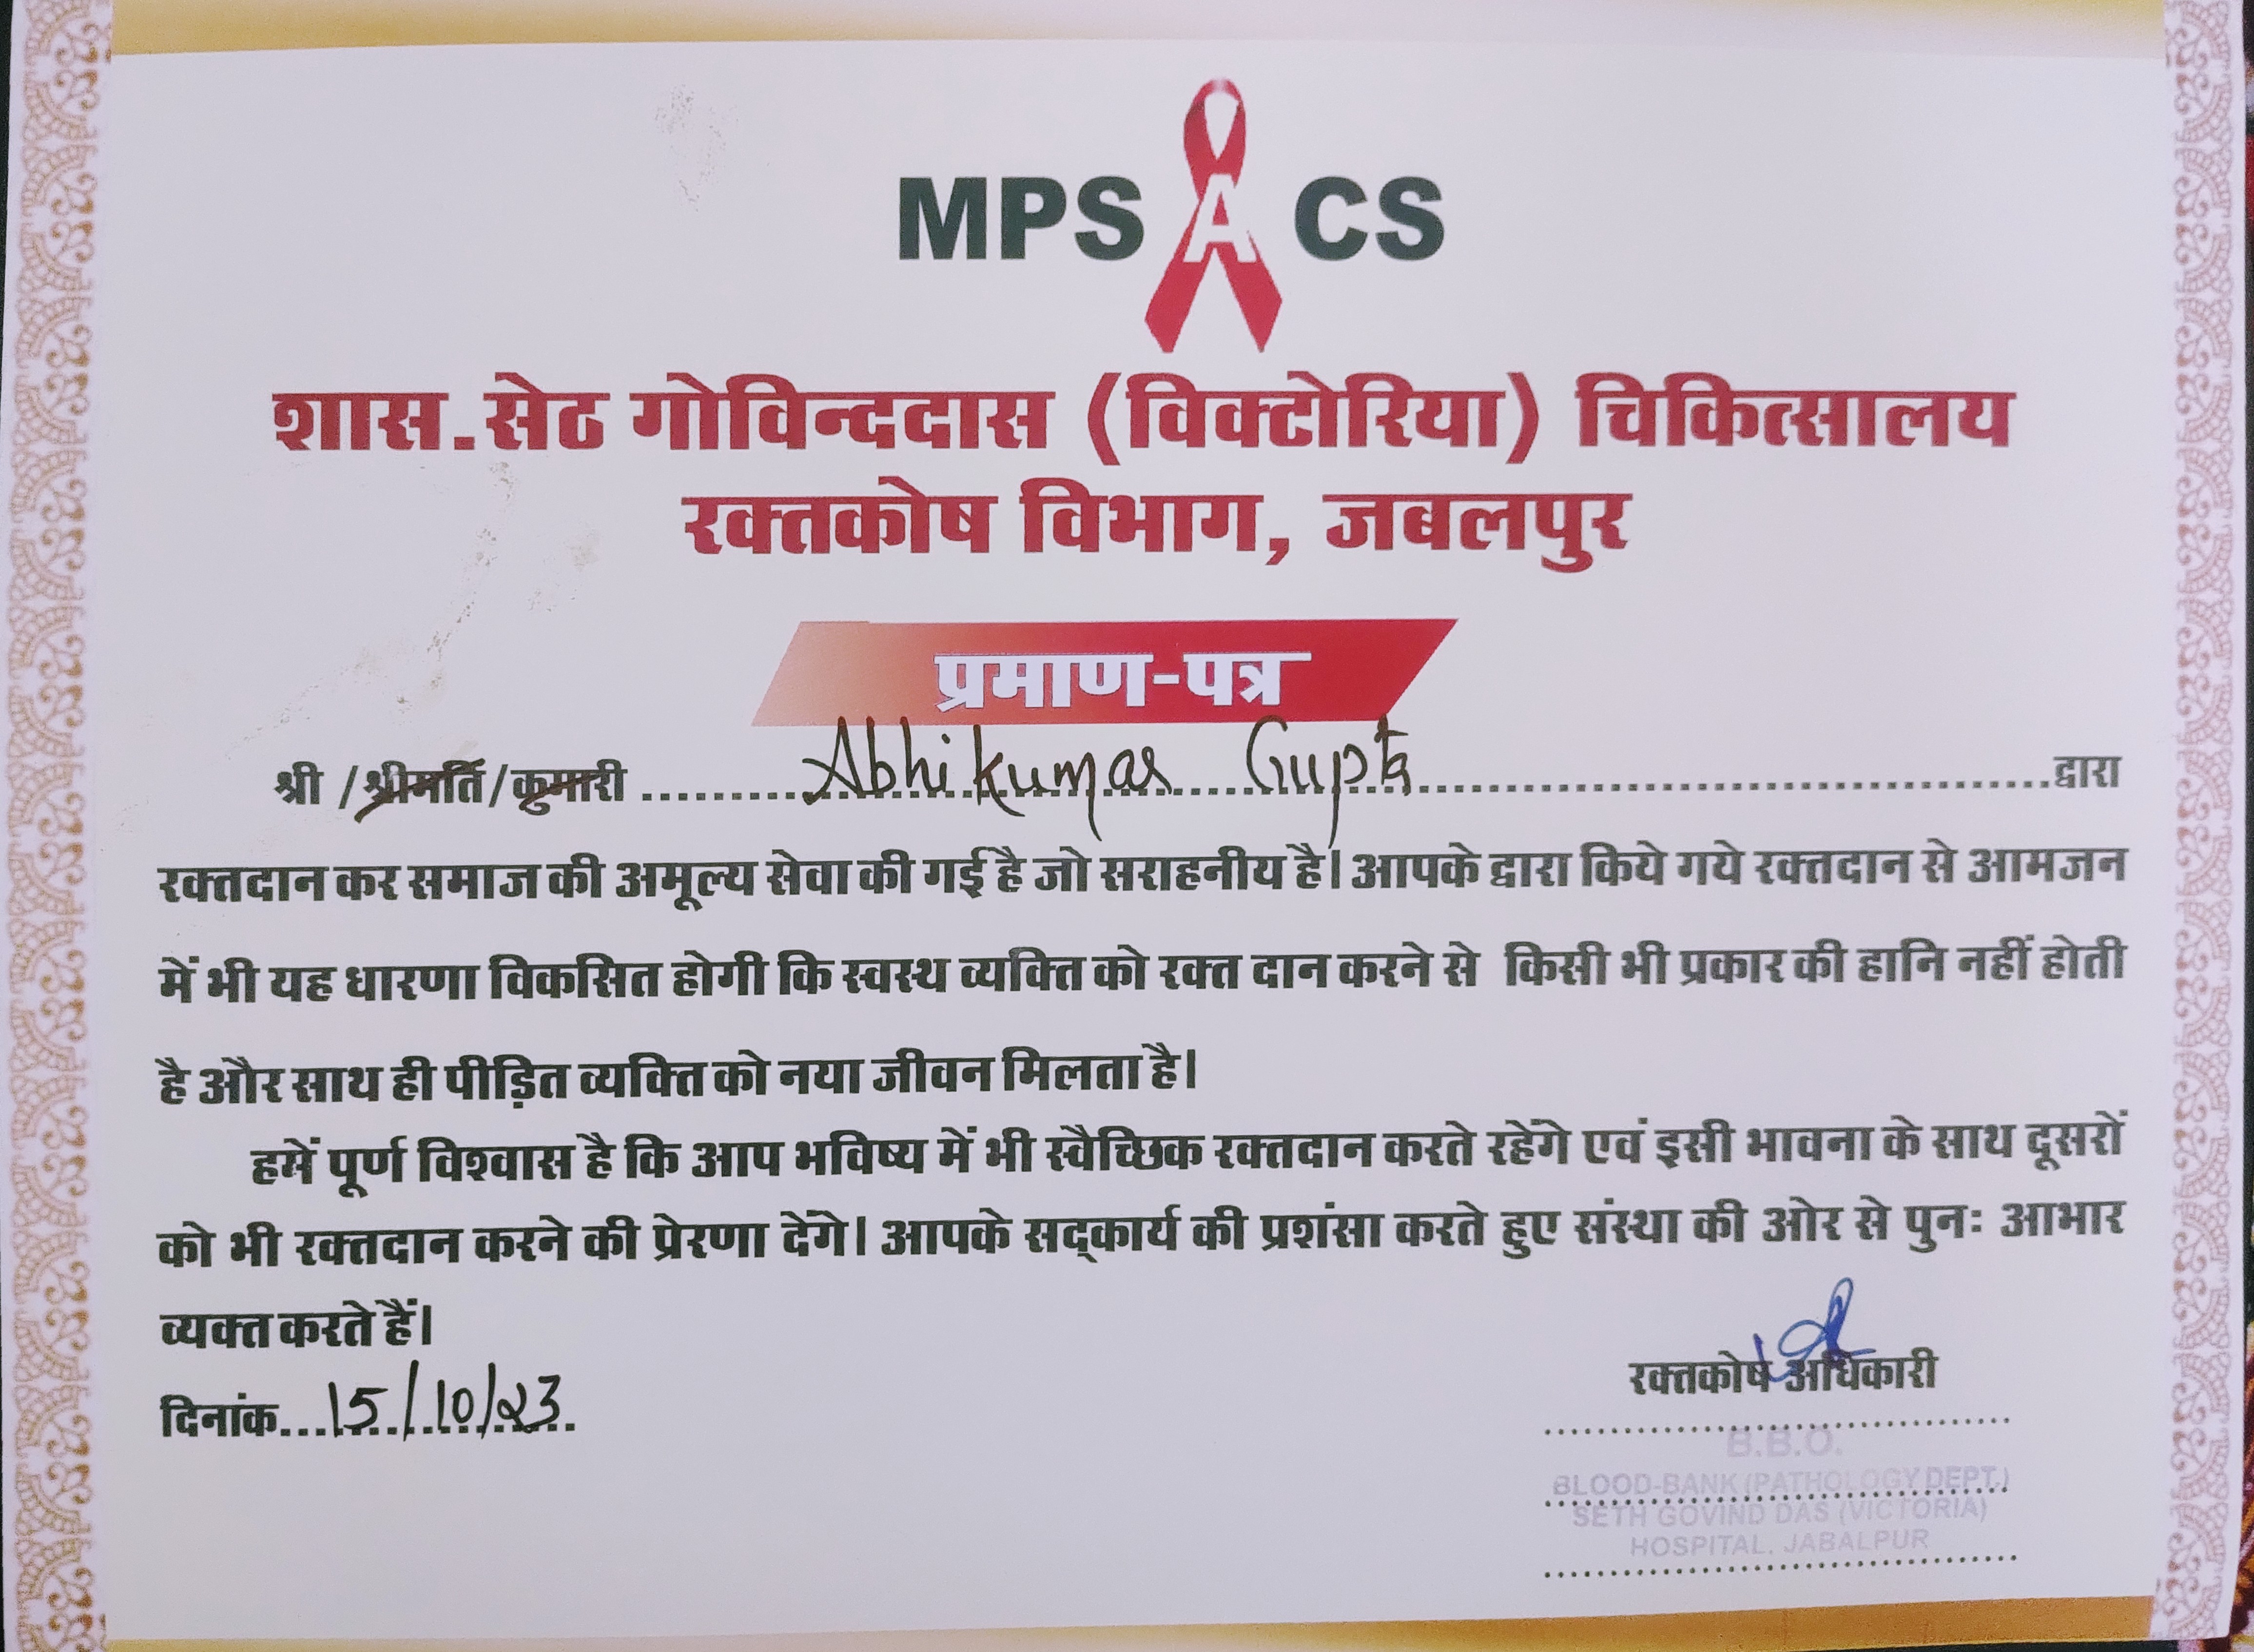 MPSACS
शास.सेठ गोविन्ददास (विक्टोरिया) चिकित्सालय
रक्तकोष विभाग, जबलपुर
प्रमाण-पत्र
श्री /श्रीमति/कुमारी ............Abhikumar Gupta............द्वारा
रक्तदान कर समाज की अमूल्य सेवा की गई है जो सराहनीय है। आपके द्वारा किये गये रक्तदान से आमजन
में भी यह धारणा विकसित होगी कि स्वस्थ व्यक्ति को रक्त दान करने से किसी भी प्रकार की हानि नहीं होती
है और साथ ही पीड़ित व्यक्ति को नया जीवन मिलता है।
हमें पूर्ण विश्वास है कि आप भविष्य में भी स्वैच्छिक रक्तदान करते रहेंगे एवं इसी भावना के साथ दूसरों
को भी रक्तदान करने की प्रेरणा देंगे। आपके सद्कार्य की प्रशंसा करते हुए संस्था की ओर से पुनः आभार
व्यक्त करते हैं।
दिनांक...15/10/23.
रक्तकोष अधिकारी
B.B.O.
BLOOD-BANK (PATHOLOGY DEPT.)
SETH GOVIND DAS (VICTORIA)
HOSPITAL, JABALPUR